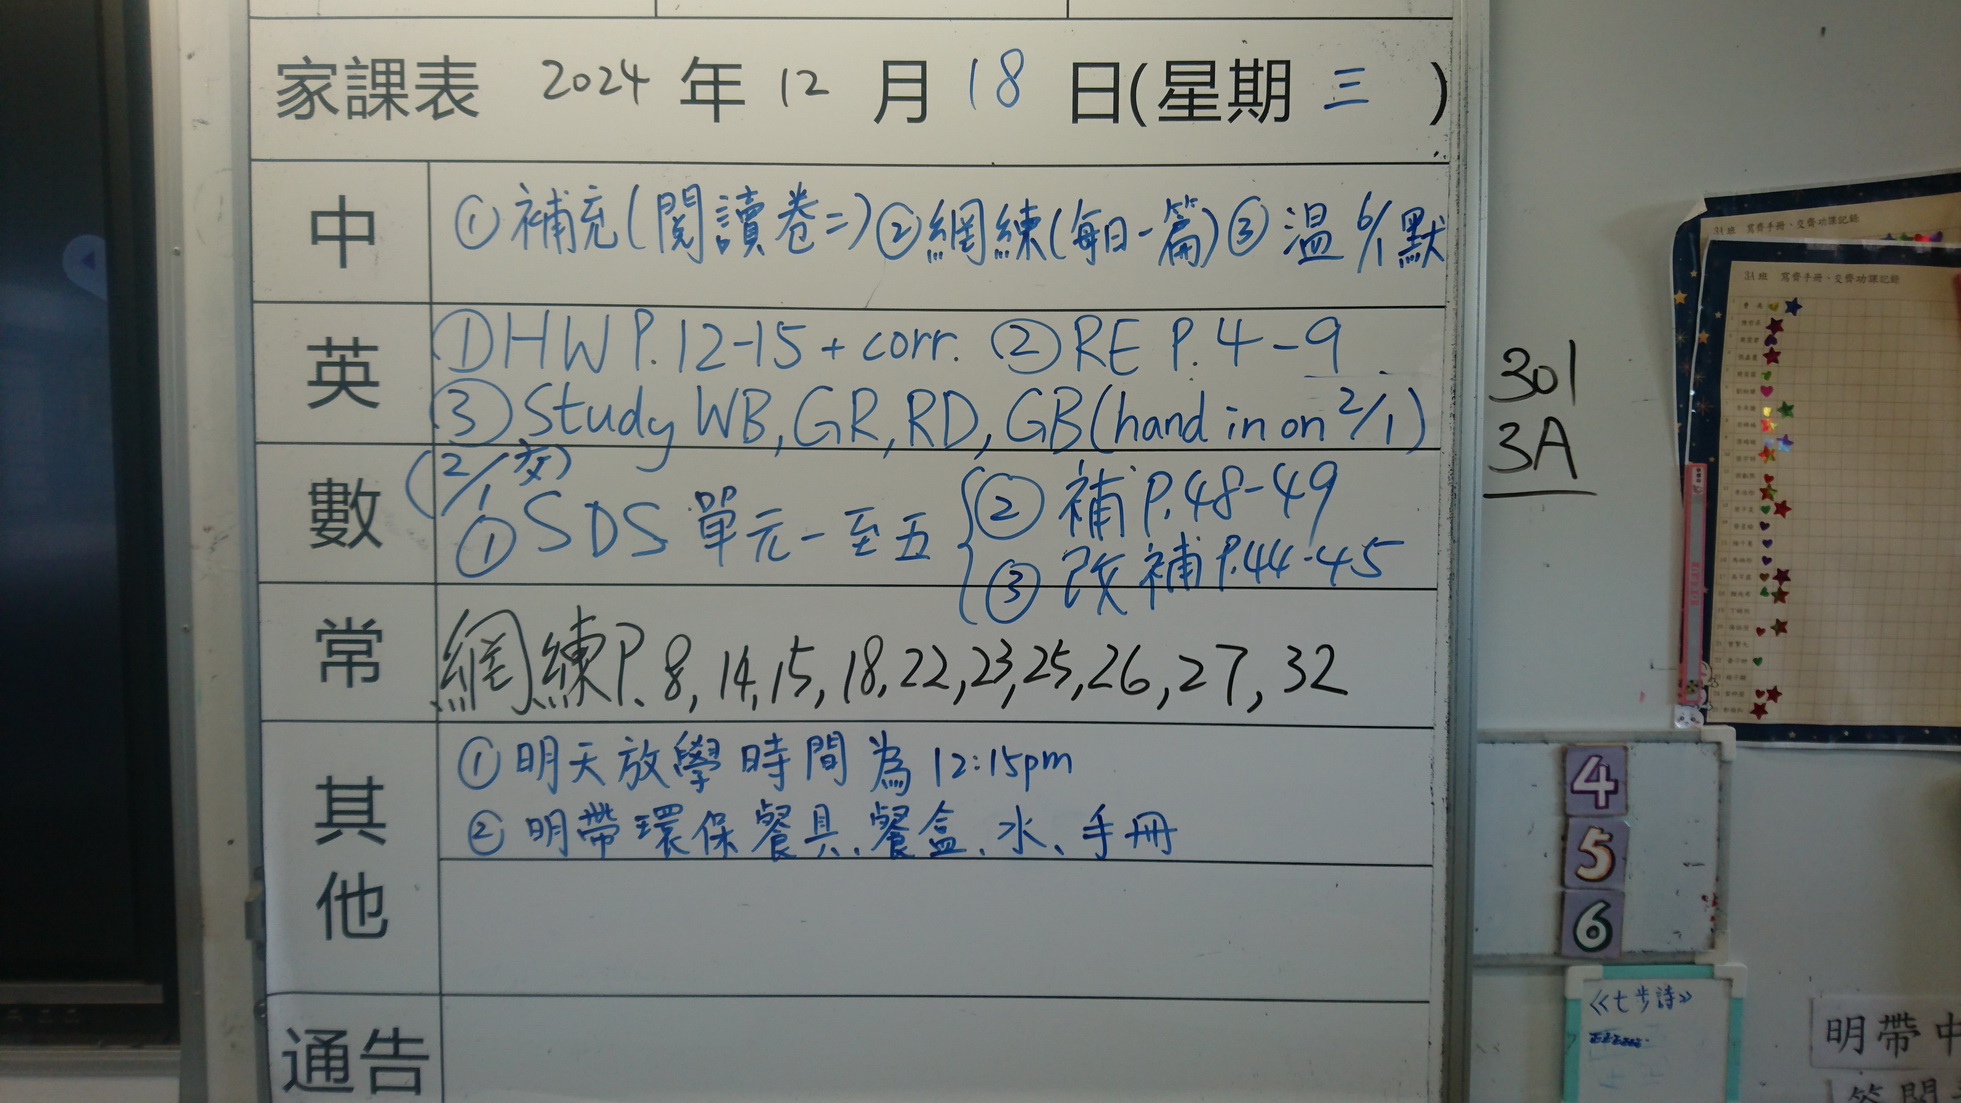 家課表 2024 年 12 月 18 日(星期 三 )
中
①補充(閱讀卷二)②網練(每日一篇)③溫6/1默
英
①HW P.12-15 + corr. ②RE P.4-9
③Study WB, GR, RD, GB(hand in on 2/1)
數
(2/1交)
①SDS 單元一至五
②補P.48-49
③改補P.44-45
常
網練P.8, 14, 15, 18, 22, 23, 25, 26, 27, 32
其他
①明天放學時間為12:15pm
②明帶環保餐具、餐盒、水、手冊
通告
301
3A
3A班 寫齊手冊、交齊功課記錄
3A班 寫齊手冊、交齊功課記錄
4
5
6
《七步詩》
明帶中